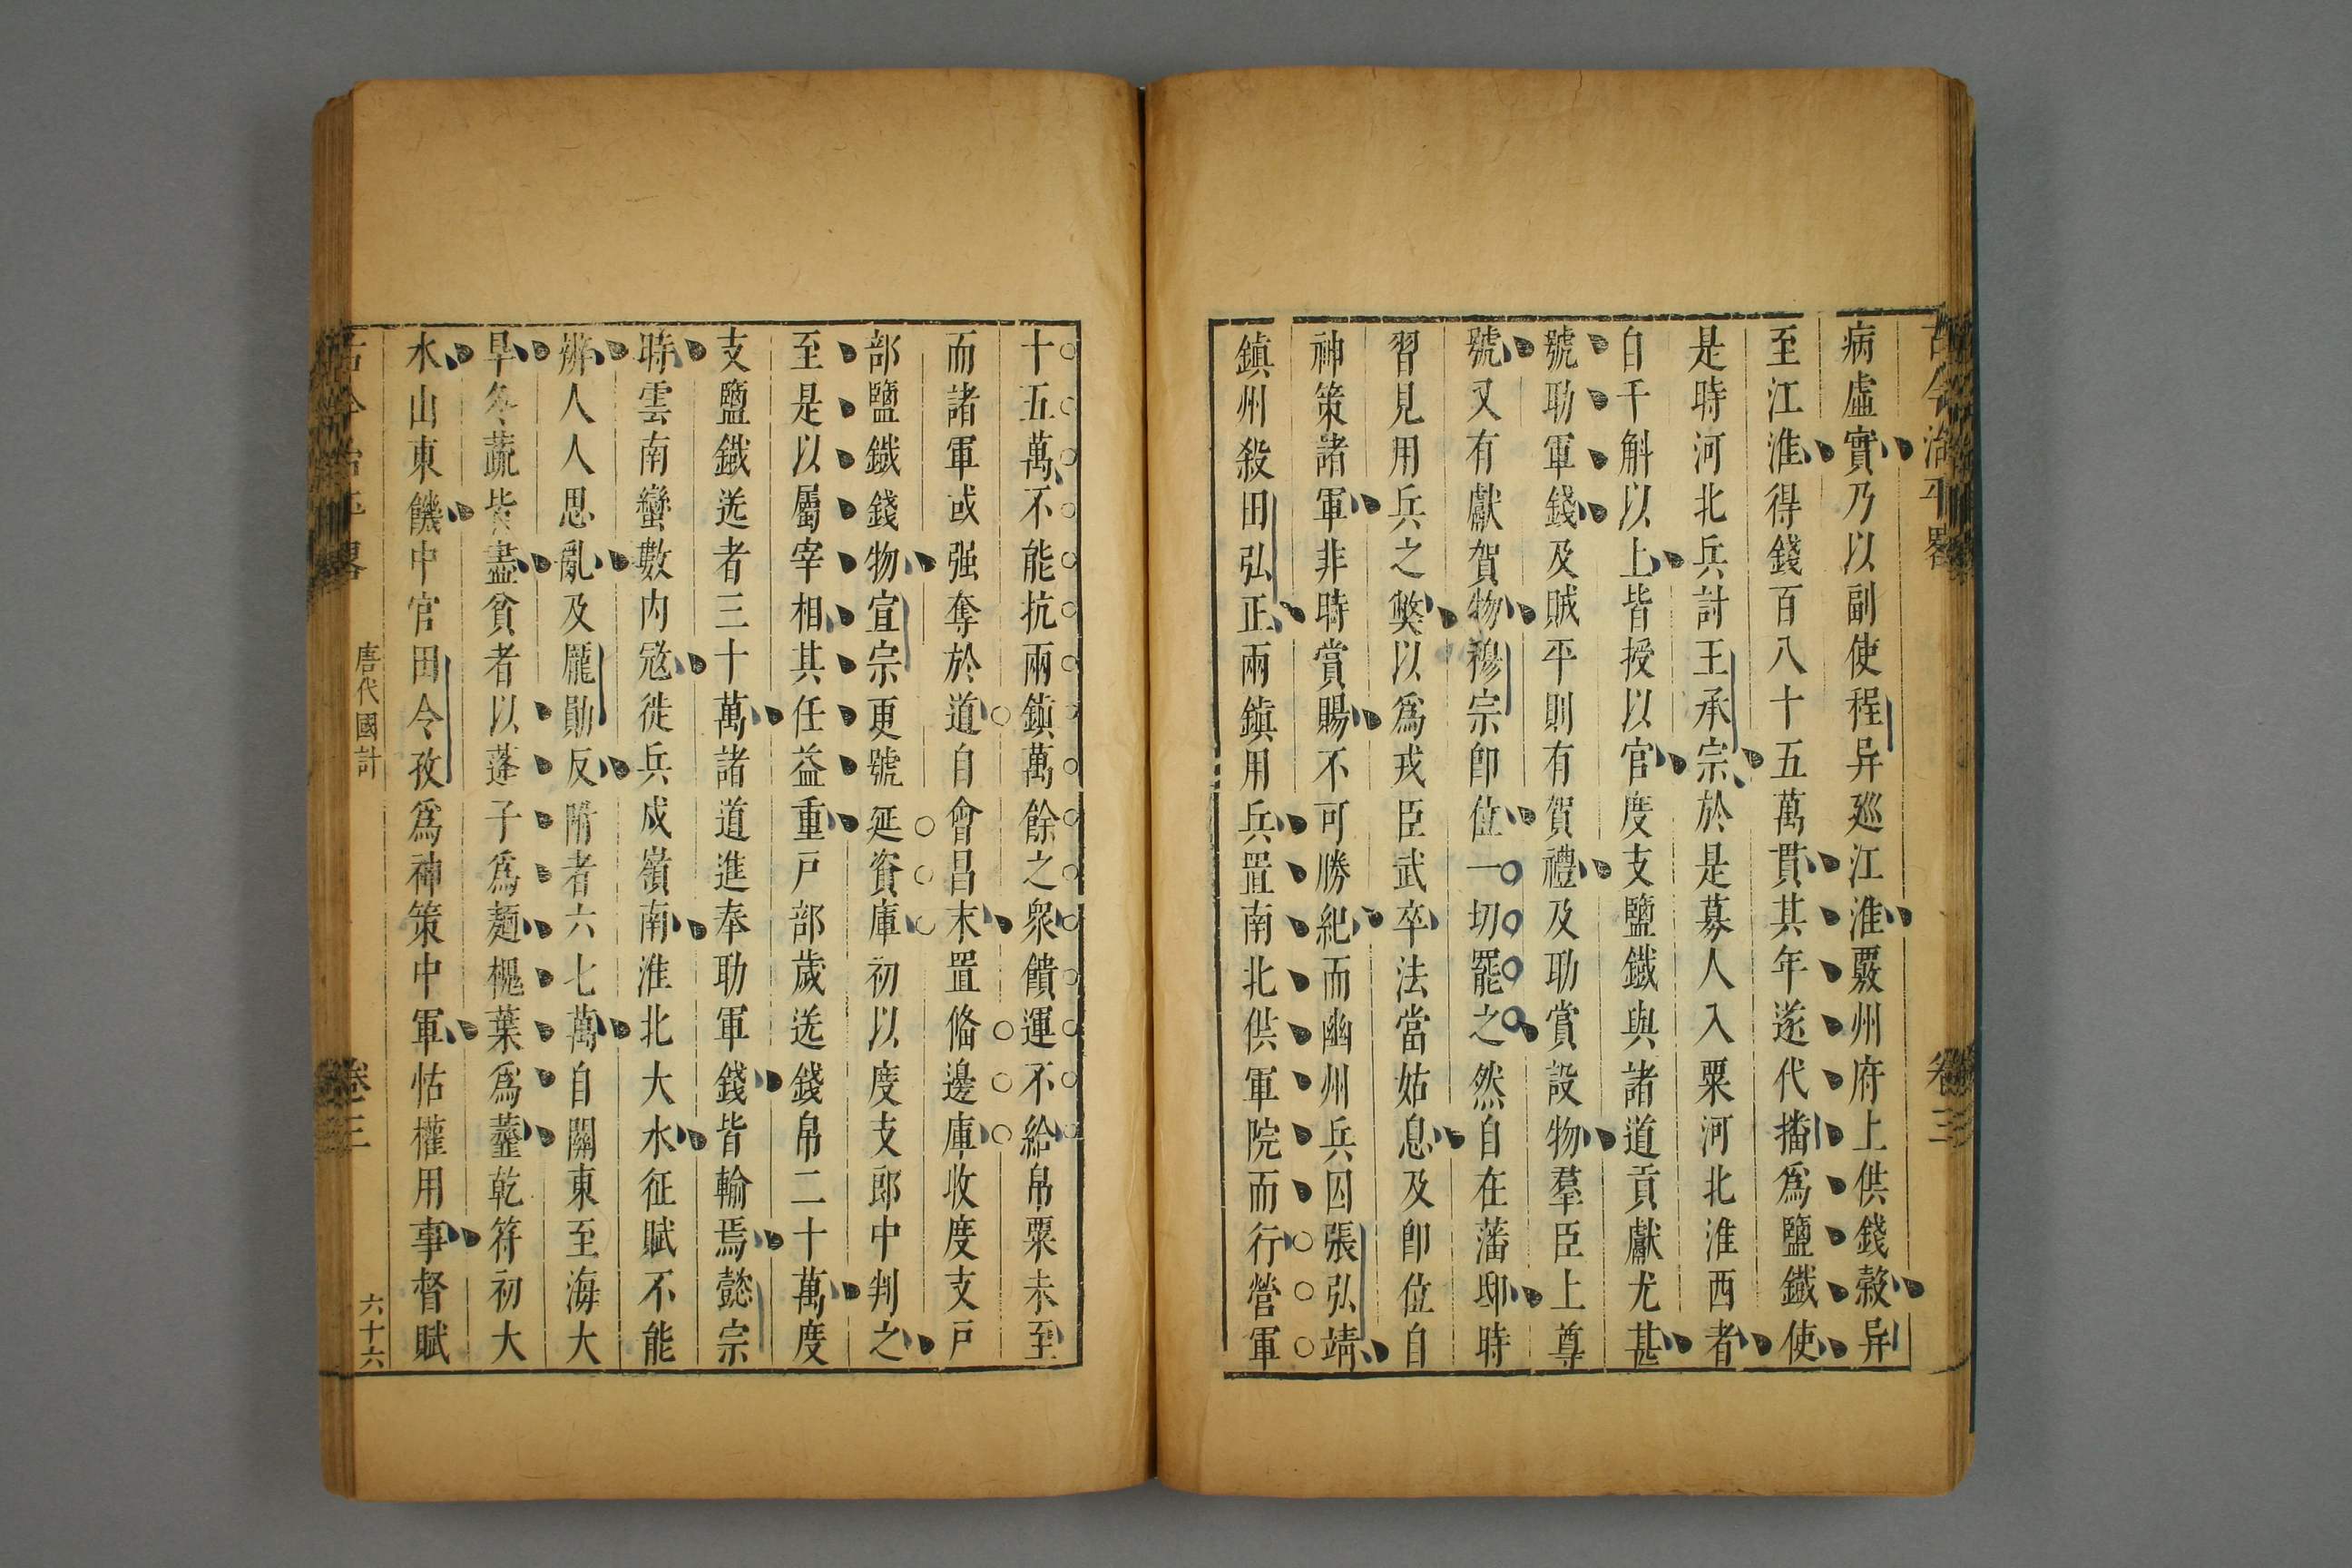 古今治平畧 卷三
病虛實乃以副使程异廵江淮覈州府上供錢糓异
至江淮得錢百八十五萬貫其年遂代播爲鹽鐵使
是時河北兵討王承宗於是募人入粟河北淮西者
自千斛以上皆授以官度支鹽鐵與諸道貢獻尤甚
號助軍錢及賊平則有賀禮及助賞設物羣臣上尊
號又有獻賀物穆宗卽位一切罷之然自在藩邸時
習見用兵之獘以爲戎臣武卒法當姑息及卽位自
神策諸軍非時賞賜不可勝紀而幽州兵囚張弘靖
鎮州殺田弘正兩鎮用兵置南北供軍院而行營軍
十五萬不能抗兩鎮萬餘之衆饋運不給帛粟未至
而諸軍或强奪於道自會昌末置俻邊庫收度支戸
部鹽鐵錢物宣宗更號延資庫初以度支郎中判之
至是以屬宰相其任益重戸部歲送錢帛二十萬度
支鹽鐵送者三十萬諸道進奉助軍錢皆輸焉懿宗
時雲南蠻數内宼徙兵戍嶺南淮北大水征賦不能
辦人人思亂及龐勛反附者六七萬自關東至海大
旱冬蔬皆盡貧者以蓬子爲麵槐葉爲虀乾符初大
水山東饑中官田令孜爲神策中軍怙權用事督賦
古今治平畧 唐代國計 卷三 六十六